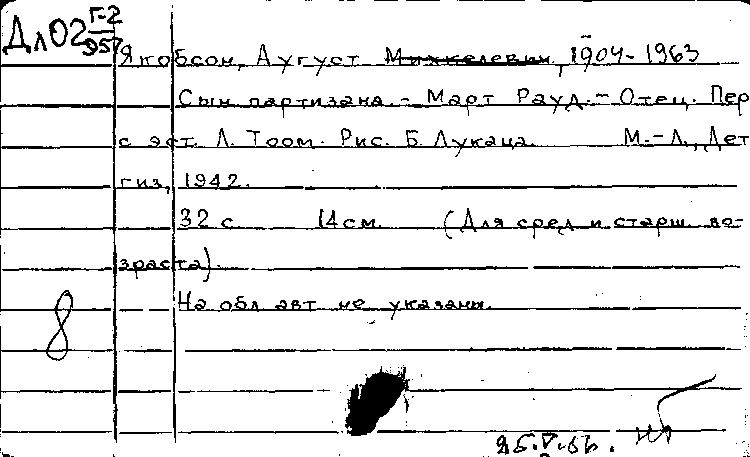 Дл02 Г-2/957
Якобсон, Август Михкелевич, 1904-1963
Сын партизана. - Март Рауд. - Отец. Пер
с эст. Л. Тоом. Рис. Б. Лукаца. М.-Л., Дет
гиз, 1942.
32 с 14 см. (Для сред и старш. во-
зраста).
На обл авт не указаны.
8